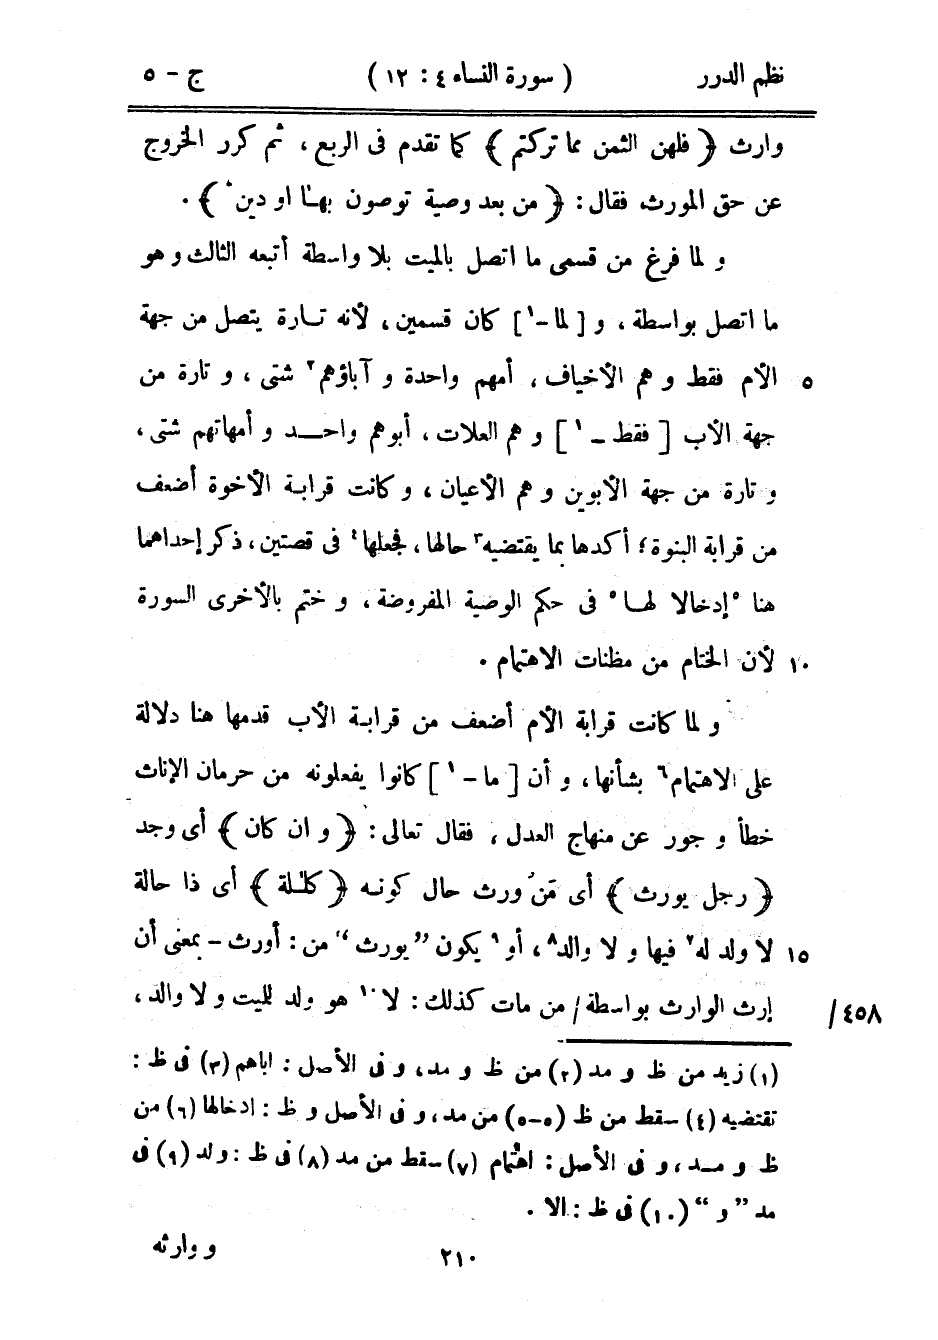 نظم الدرر ( سورة النساء ٤ : ١٢ ) ج - ٥
وارث ﴿ فلهن الثمن مما تركتم ﴾ كما تقدم فى الربع ، ثم كرر الخروج
عن حق المورث فقال : ﴿ من بعد وصية توصون بهآ او دين ۖ ﴾ .
و لما فرغ من قسمى ما اتصل بالميت بلا واسطة أتبعه الثالث و هو
ما اتصل بواسطة ، و [ لما - ١ ] كان قسمين ، لأنه تارة يتصل من جهة
٥ الأم فقط و هم الأخياف ، أمهم واحدة و آباؤهم ٢ شتى ، و تارة من
جهة الأب [ فقط - ١ ] و هم العلات ، أبوهم واحد و أمهاتهم شتى ،
و تارة من جهة الأبوين و هم الأعيان ، و كانت قرابة الأخوة أضعف
من قرابة البنوة ؛ أكدها بما يقتضيه ٣ حالها ، فجعلها ٤ فى قصتين ، ذكر إحداهما
هنا ٥ إدخالا لها ٥ فى حكم الوصية المفروضة ، و ختم بالأخرى السورة
١٠ لأن الختام من مظنات الاهتمام .
و لما كانت قرابة الأم أضعف من قرابة الأب قدمها هنا دلالة
على الاهتمام ٦ بشأنها ، و أن [ ما - ١ ] كانوا يفعلونه من حرمان الإناث
خطأ و جور عن منهاج العدل ، فقال تعالى : ﴿ و ان كان ﴾ أى وجد
﴿ رجل يورث ﴾ أى مَن وُرث حال كونه ﴿ كلٰلة ﴾ أى ذا حالة
١٥ لا ولد له ٧ فيها و لا والد ٨ ، أو ٩ يكون ” يورث “ من : أورث - بمعنى أن
إرث الوارث بواسطة / من مات كذلك : لا ١٠ هو ولد للميت و لا والد ، / ٤٥٨
(١) زيد من ظ و مد (٢) من ظ و مد ، و فى الأصل : اباهم (٣) فى ظ :
تقتضيه (٤) سقط من ظ (٥-٥) من مد ، و فى الأصل و ظ : ادخالها (٦) من
ظ و مد ، و فى الأصل : اهتمام (٧) سقط من مد (٨) فى ظ : ولد (٩) فى
مد ” و “ (١٠) فى ظ : الا .
٢١٠ و وارثه